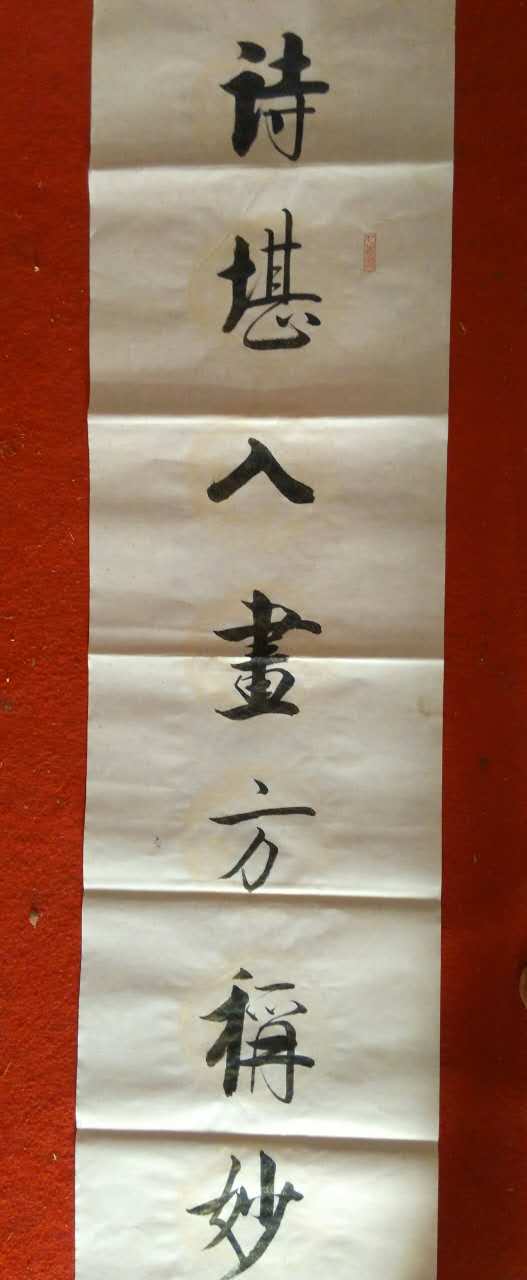 詩堪入畫方稱妙